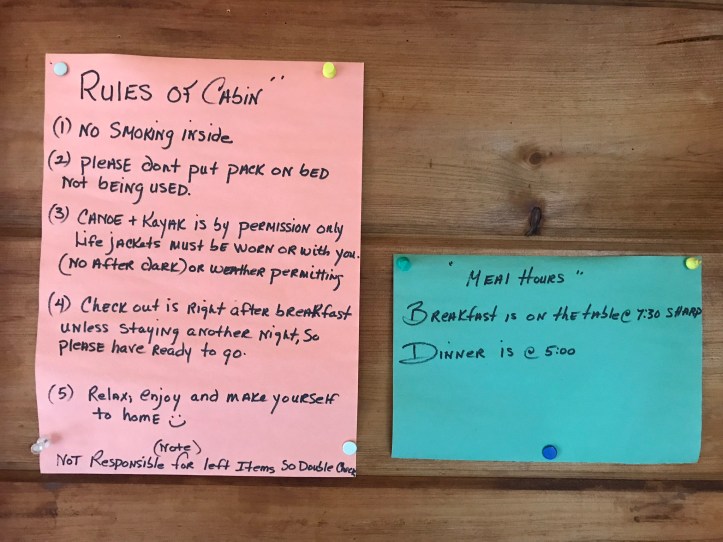 Rules of Cabin"
(1) No Smoking inside
(2) Please dont put pack on bed
Not being used.
(3) Canoe + Kayak is by permission only
Life jackets must be worn or with you.
(No After dark) or weather permitting
(4) Check out is Right after breakfast
unless staying another night, So
Please have Ready to go.
(5) Relax, enjoy and make yourself
to home
(Note)
Not Responsible for left Items So Double Check
"Meal Hours"
Breakfast is on the table @ 7:30 SHARP
Dinner is @ 5:00